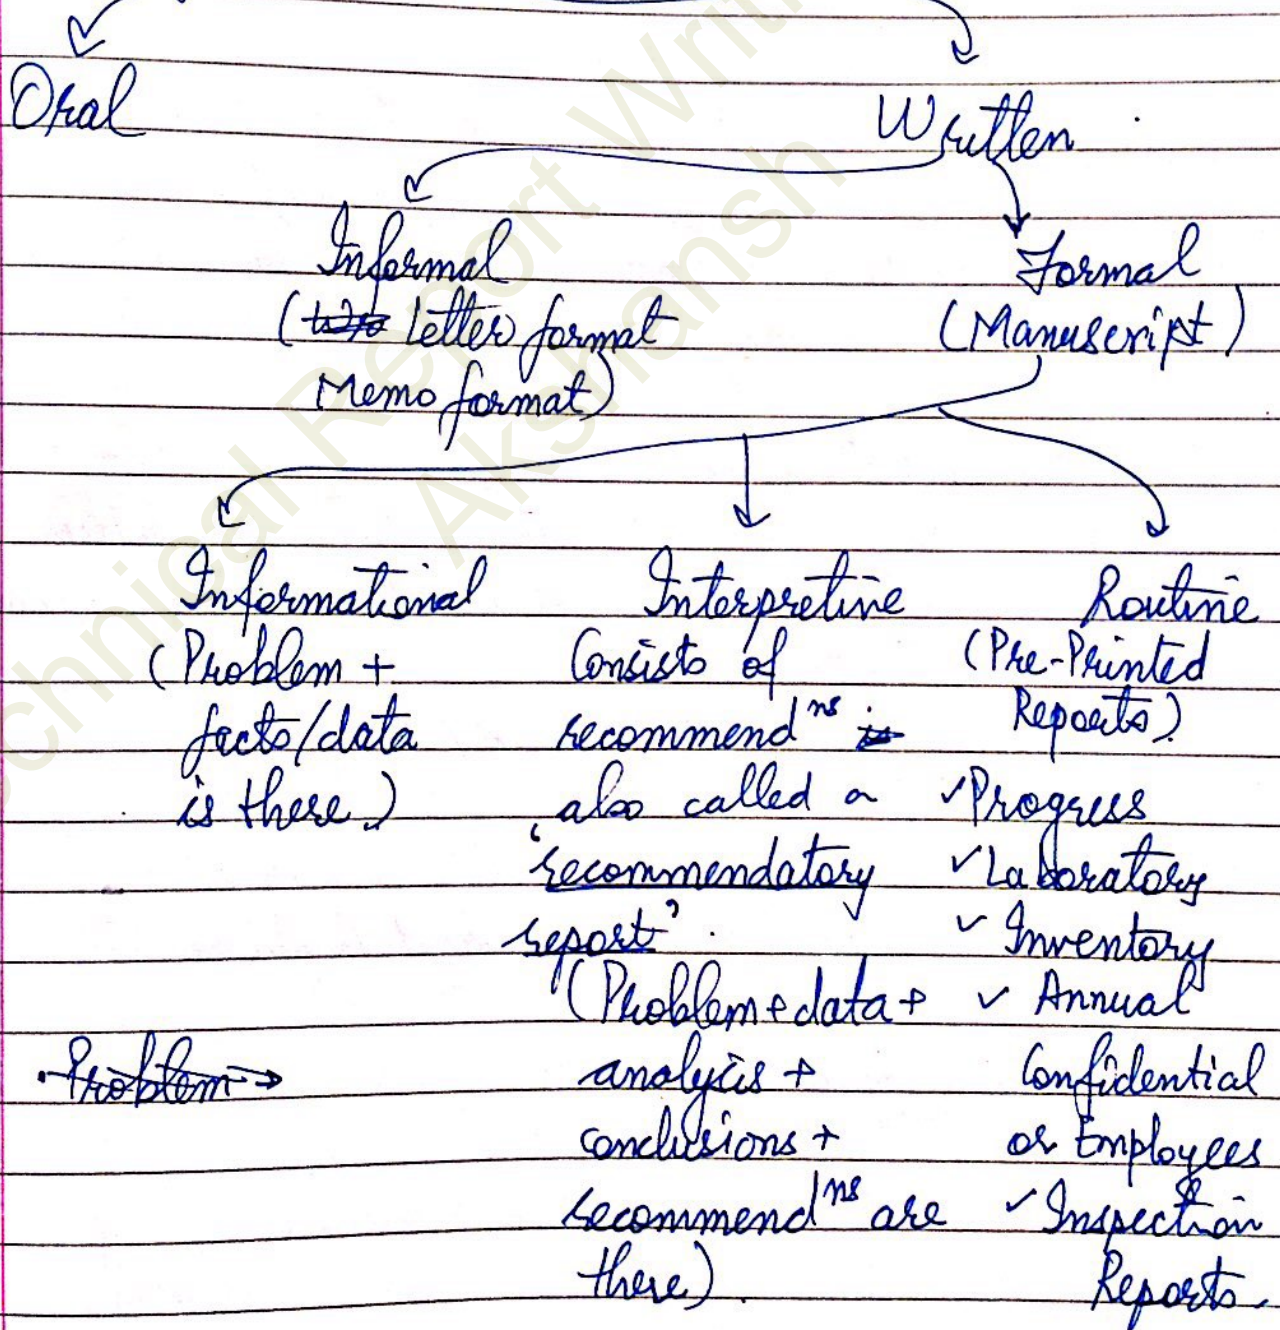 Oral
Written
Informal
Formal
(Letter format
(Manuscript)
Memo format)
Informational
(Problem +
facts/data
is there)
Interpretive
Consists of
recommendⁿˢ
also called a
'recommendatory
report'.
(Problem + data +
analysis +
conclusions +
recommendⁿˢ are
there).
Routine
(Pre-Printed
Reports)
✓Progress
✓Laboratory
✓ Inventory
✓ Annual
Confidential
or Employees
✓ Inspection
Reports.
Problem →
Technical Report Writ
Akshansh